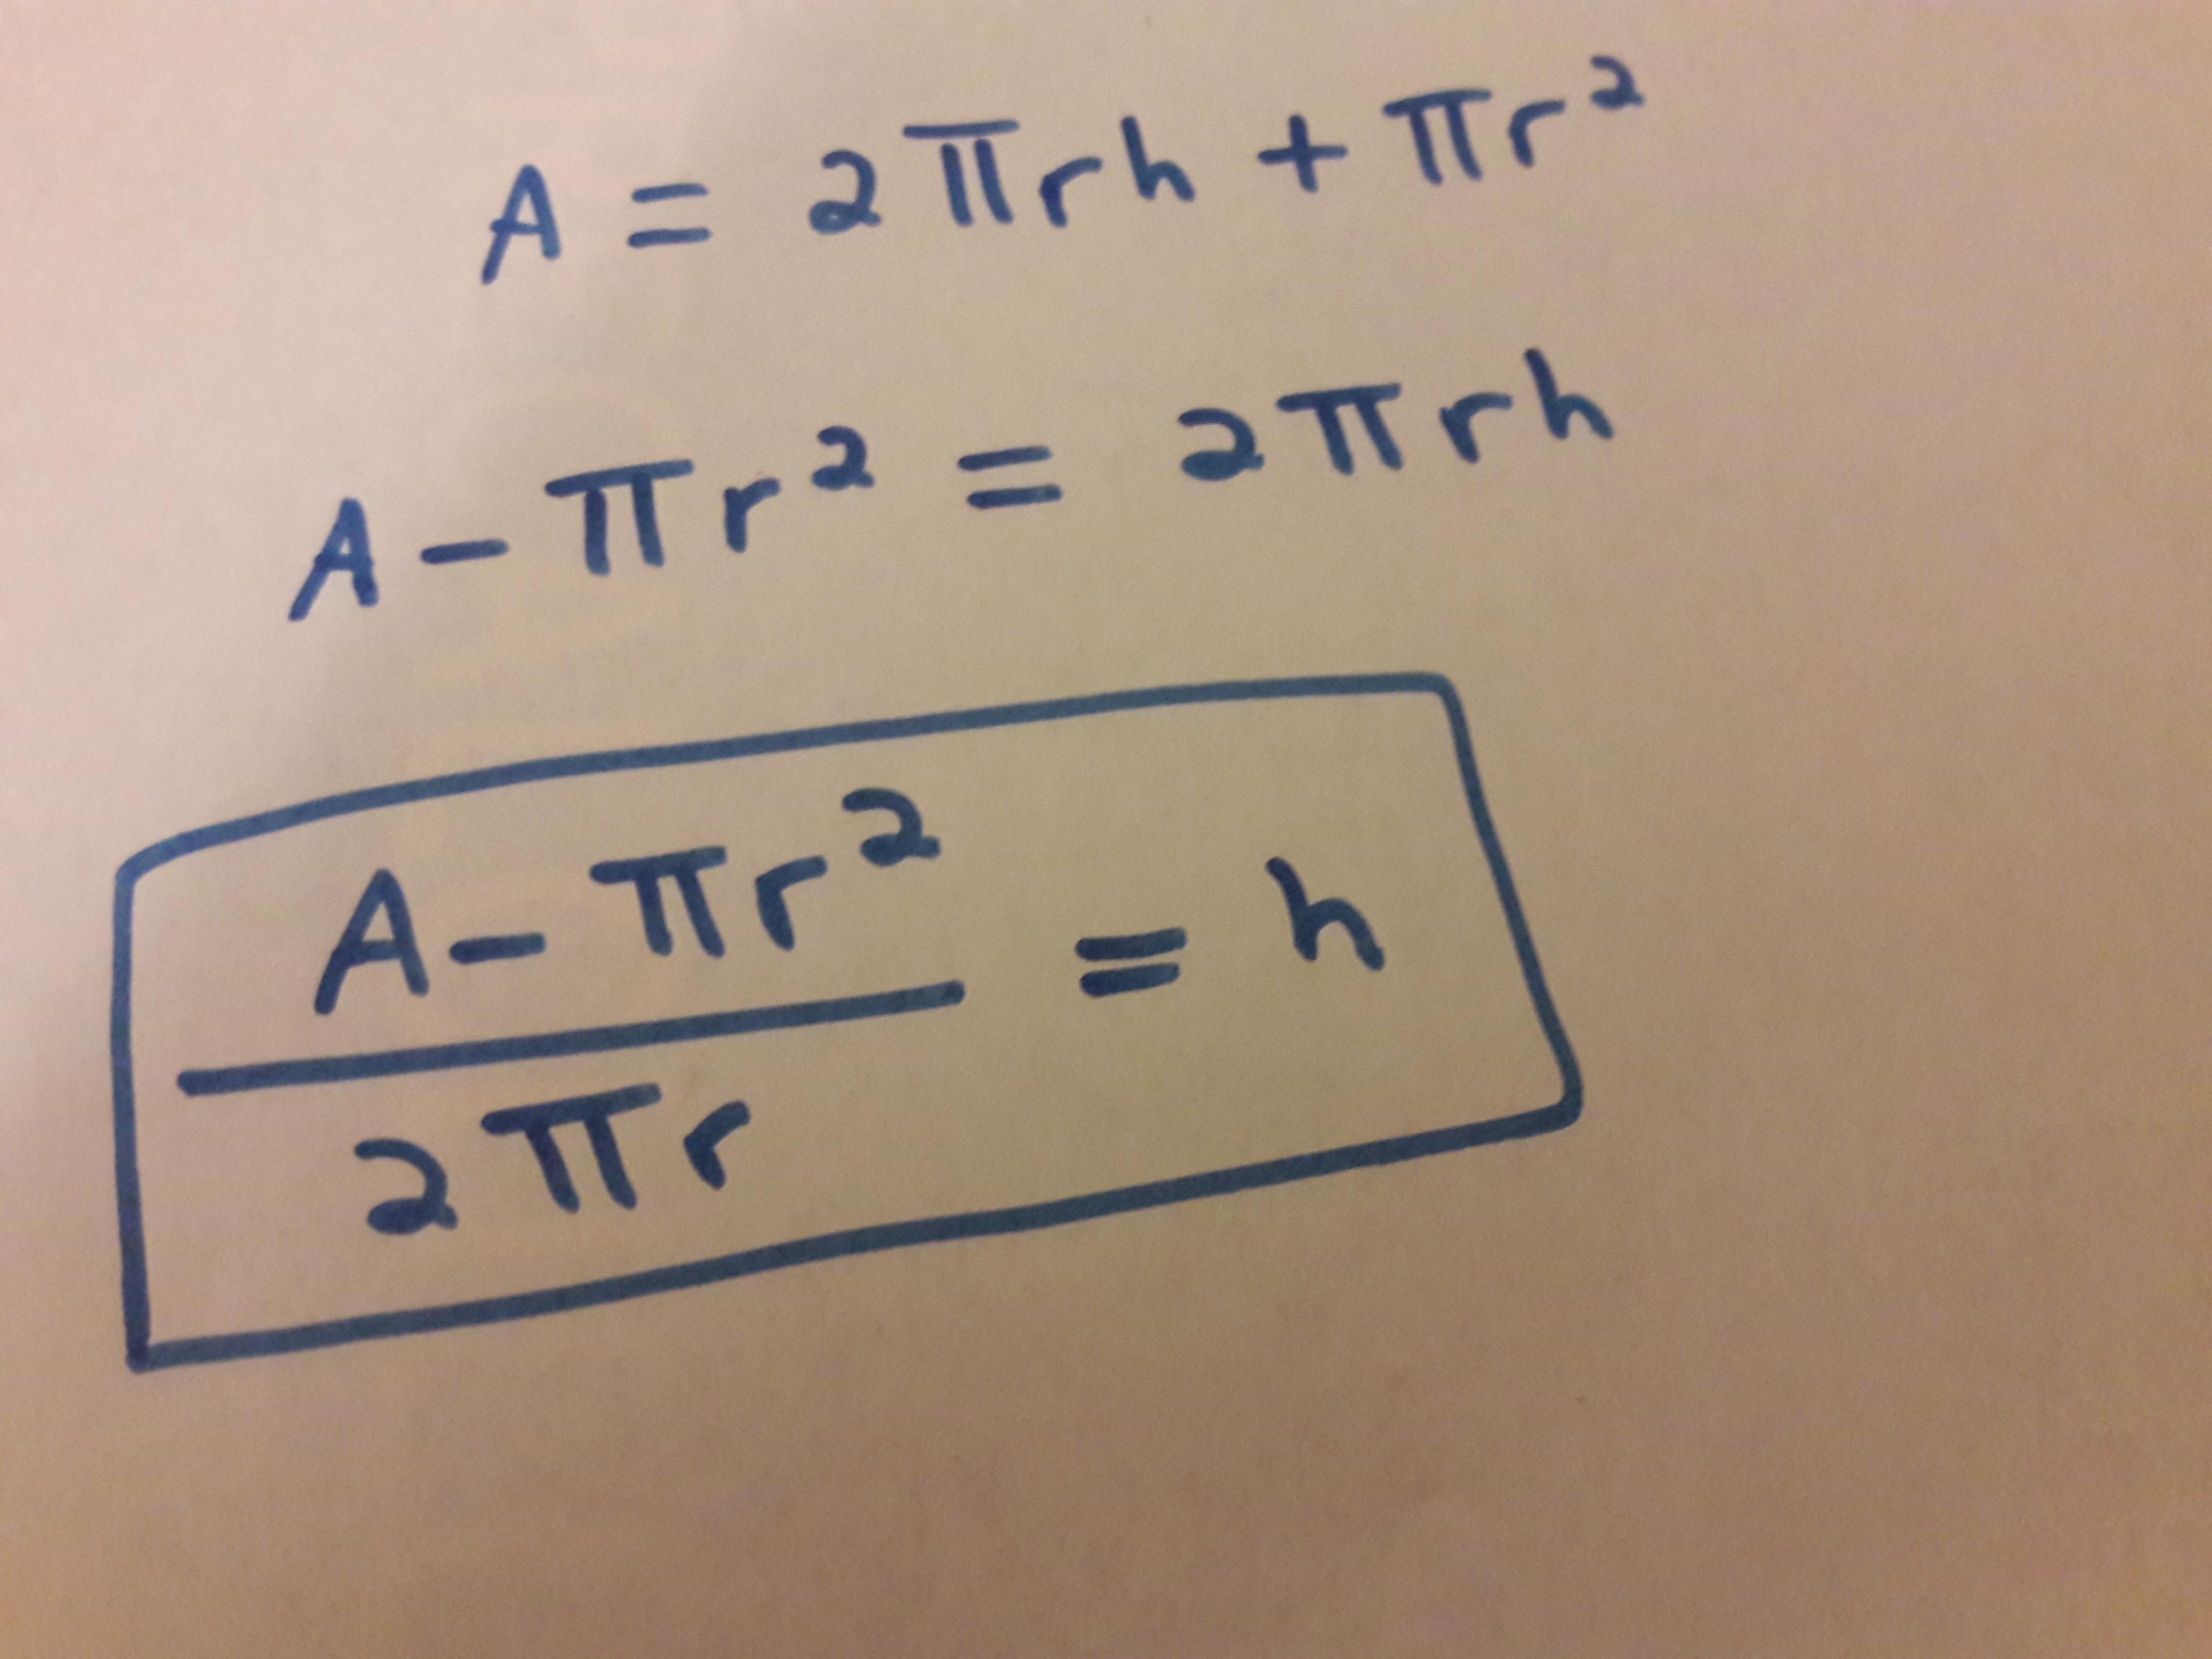 A = 2πrh + πr²
A - πr² = 2πrh
A - πr²
2πr
= h